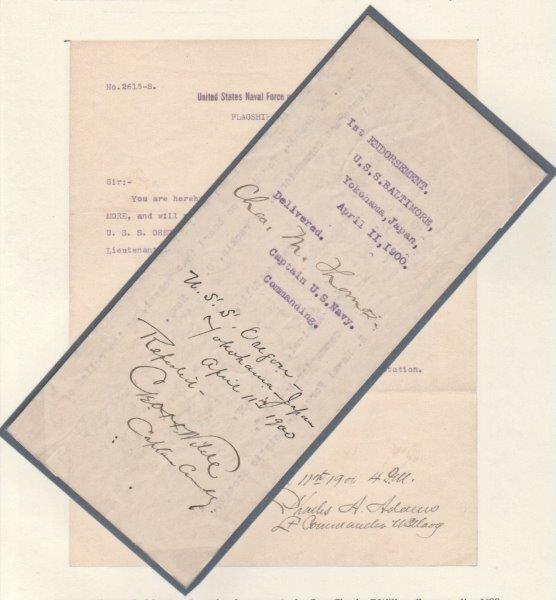 No.2615-S.
United States Naval Force
FLAGSHIP
Sir:-
You are hereb
MORE, and will
U. S. S. OREG
Lieutenant
tation.
11th 1900 4 P.M.
Charles A. Adams
Lt Commander U.S. Navy
1st ENDORSEMENT.
U.S.S.BALTIMORE,
Yokohama, Japan,
April 11, 1900.
Delivered.
Chas. M. Thomas.
Captain U.S.Navy.
Commanding.
U.S.S. Oregon-
Yokohama Japan
April 11th 1900
Reported-
Wilde
Captain Comdg.